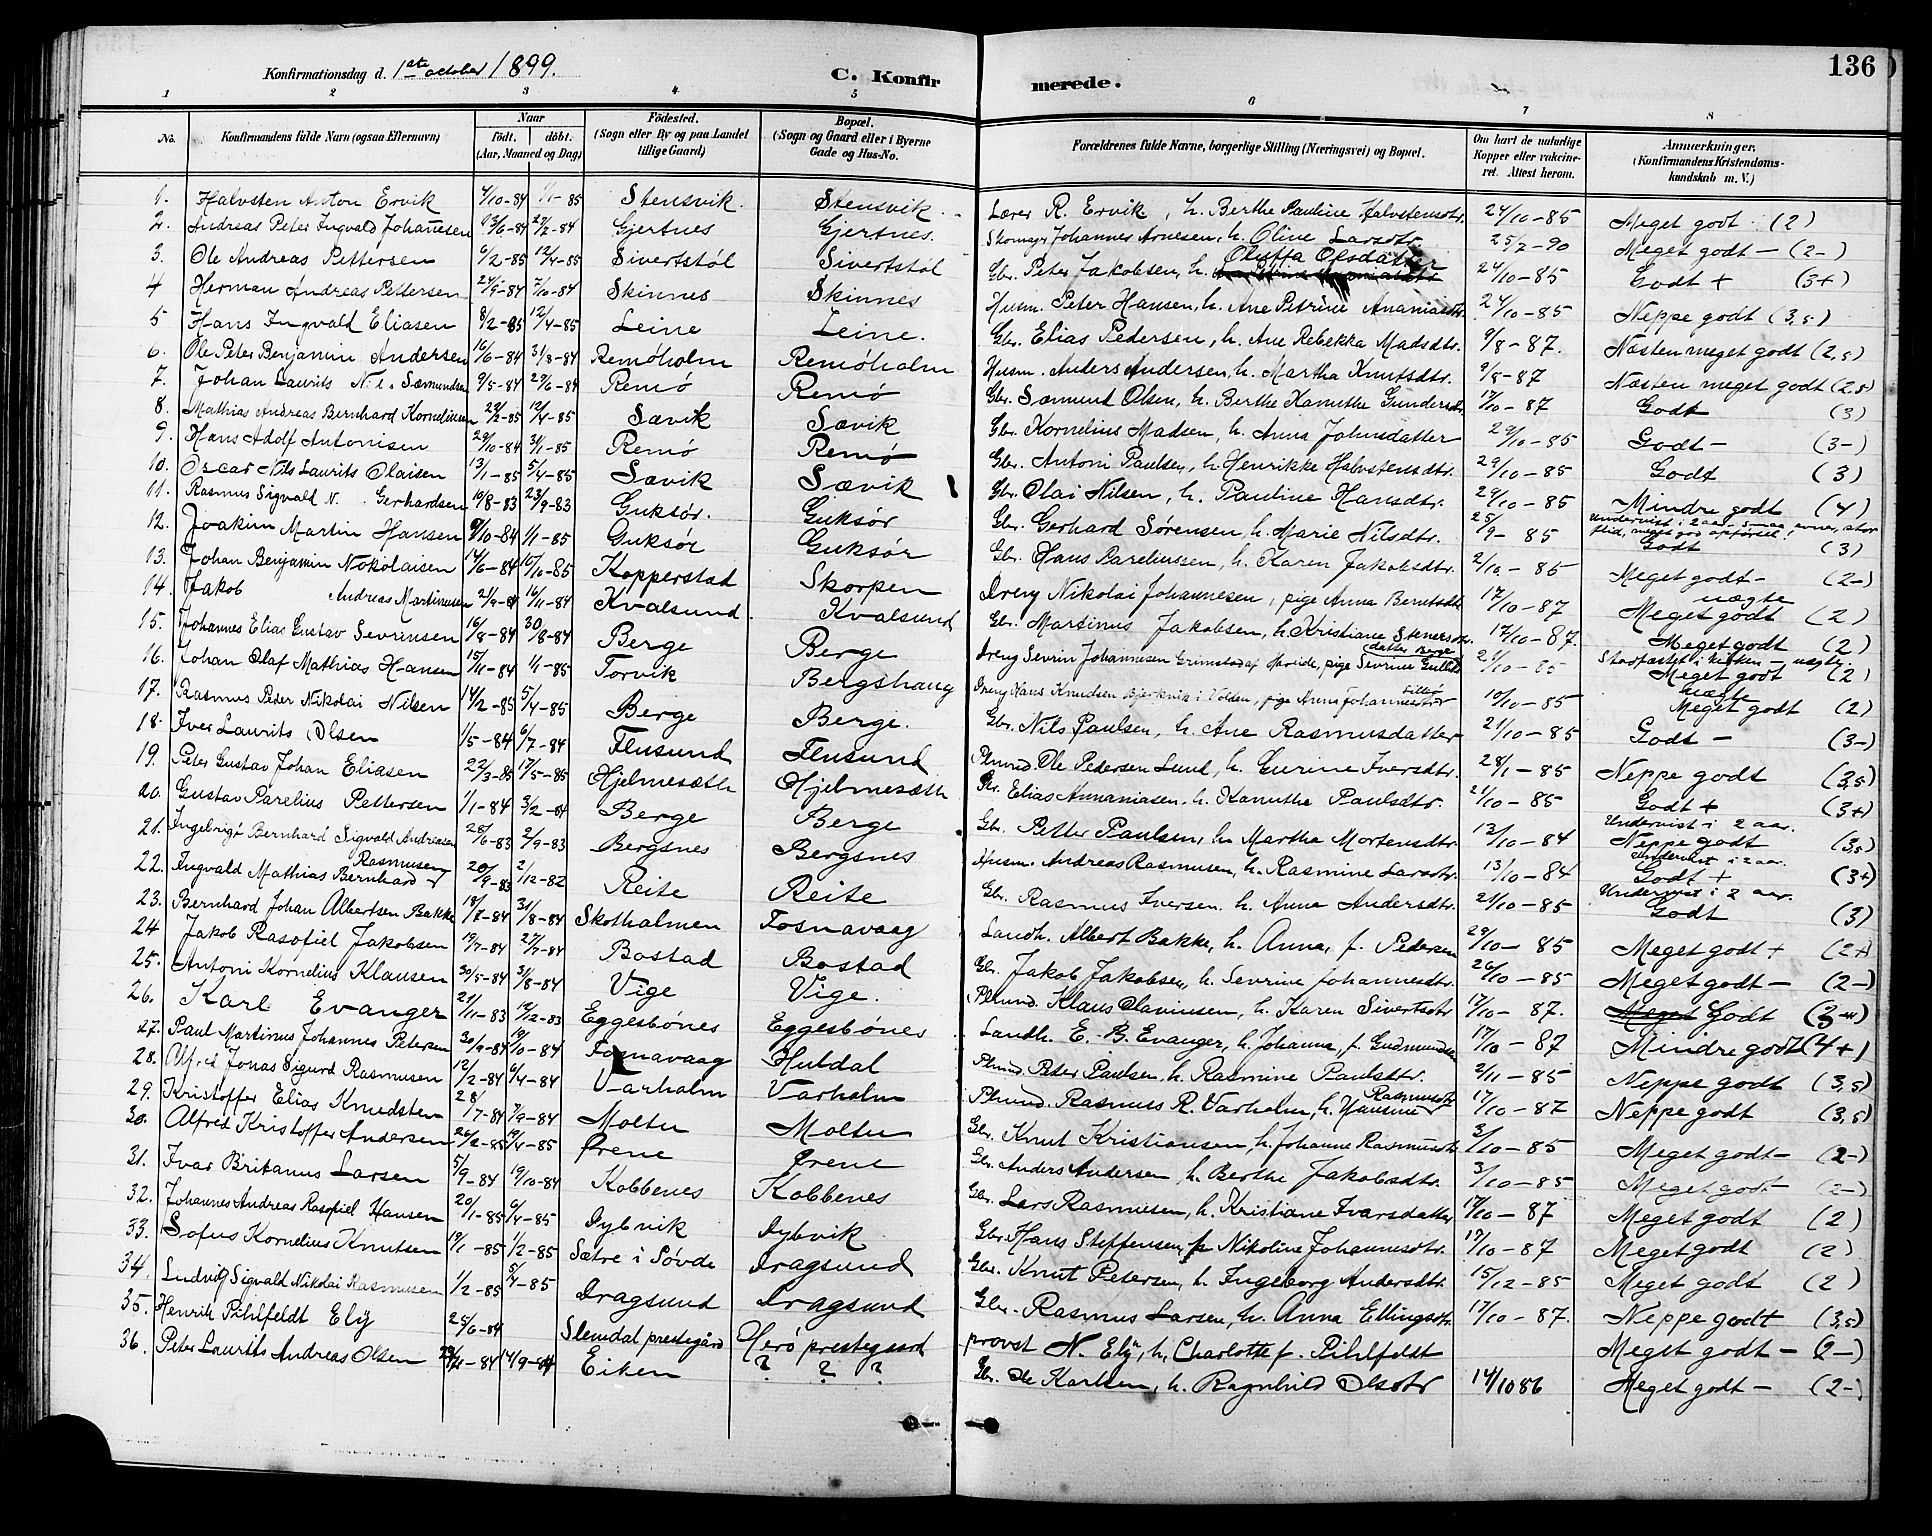 Konfirmationsdag d. 1ste october 1899.
C. Konfirmerede.
136
1 2 3 4 5 6 7 8
No. Konfirmandens fulde Navn (ogsaa Efternavn) Naar født. døbt. (Aar, Maaned og Dag) Fødested. (Sogn eller By og paa Landet tillige Gaard) Bopæl. (Sogn og Gaard eller i Byerne Gade og Hus-No. Forældrenes fulde Navne, borgerlige Stilling (Næringsvei) og Bopæl. Om havt de naturlige Kopper eller vakcineret. Attest herom. Anmærkninger. (Konfirmandens Kristendomskundskab m. V.)
1. Halvsten Anton Ervik 4/10-84 1/1-85 Stensvik. Stensvik. Lærer R. Ervik, h. Berthe Pauline Halvstensdtr. 24/10-85 Meget godt (2)
2. Andreas Peter Ingvald Johannesen 13/6-84 27/2-84 Gjertnes Gjertnes. Skomagr Johannes Arnesen, h. Oline Larsdtr. 25/7-90 Meget godt- (2-)
3. Ole Andreas Pettersen 6/2-85 12/4-85 Sivertstøl Sivertstøl Gbr. Peter Jakobsen, h. Oluffa Olsdatter 24/10-85 Godt + (3+)
4 Herman Andreas Pettersen 24/9-84 7/10-84 Skinnes Skinnes Husm. Peter Hansen, h. Ane Petrine Ananiasdtr 24/10-85 Neppe godt (3,5)
5 Hans Ingvald Eliasen 8/2-85 12/4-85 Leine Leine. Gbr. Elias Pedersen, h. Ane Rebekka Madsdtr. 9/8-87. Næsten meget godt (2,5)
6. Ole Peter Benjamin Andersen 16/6-84 31/8-84 Remøholm Remøholm Husm. Anders Andersen, h. Martha Knutsdtr. 9/8-87 Næsten meget godt (2,5)
7. Johan Laurits N. Sæmundsen 9/5-84 29/6-84 Remø Remø Gbr. Sæmund Olsen, h. Berthe Kanuthe Gundersdtr 17/10-87 Godt (3)
8. Mathias Andreas Bernhard Kornelinsen 22/2-85 12/4-85 Sævik Sævik Gbr. Kornelius Madsen, h. Anna Johnsdatter 29/10-85 Godt- (3-)
9. Hans Adolf Antonisen 29/10-84 3/1-85 Remø Remø Gbr. Antoni Paulsen, h. Henrikke Halvstensdtr. 29/10-85 Godt (3)
10. Oscar Nils Laurits Olaisen 13/1-85 5/4-85 Sævik Sævik Gbr. Olai Nilsen, h. Pauline Hansdtr. 29/10-85 Mindre godt (4)
11. Rasmus Sigvald N. Gerhardsen 16/8-83 23/9-83 Guksør. Guksør Gbr. Gerhard Sørensen, h. Marie Nilsdtr. 25/9-85 Undervist i 2 aar. Smaa evner, stor flid, meget god opførsel!
12. Joakim Martin Hansen 9/10-84 1/11-85 Guksør Guksør Gbr. Hans Pareliussen, h. Karen Jakobsdtr. 2/10-85 Godt (3)
13. Johan Benjamin Nokolaisen 14/6-84 15/10-85 Kopperstad Skorpen Dreng Nikolai Johannesen, pige Anna Berntsdtr 17/10-87 Meget godt- (2-) uægte
14. Jakob Andreas Martinusen 21/9-84 16/11-84 Kvalsund. Kvalsund Gbr. Martinus Jakobsen, h. Kristiane Stenersdtr. 17/10-87. Meget godt (2)
15. Johannes Elias Gustav Sevrinsen 16/8-84 30/8-84 Berge Berge Dreng Sevrin Johannesen Grimstad af Hareide, pige Sevrine datter Berge 21/10-85 Meget godt (2) Stadfæstet i kirken- uægte.
16. Johan Olaf Mathias Hansen 15/11-84 1/1-85 Torvik Bergshaug Dreng Hans Knudsen Bjerkvik i Volden, pige Anna Johannesdtr 10/10-85 Meget godt (2) uægte
17. Rasmus Peter Nikolai Nilsen 14/2-85 5/4-85 Berge Berge. Gbr. Nils Paulsen, h. Ane Rasmusdatter 21/10-85 Meget godt (2)
18. Iver Laurits Olsen 1/5-84 6/7-84 Flusund Flusund Plmnd. Ole Pedersen Lund, h. Gurine Iversdtr. 28/1-85 Godt- (3-)
19. Peter Gustav Johan Eliasen 22/3-85 17/5-85 Hjelmesæth Hjelmesæth Gbr. Elias Annaniasen, h. Kanuthe Paulsdtr. 21/10-85 Neppe godt (3,5)
20. Gustav Parelius Pettersen 1/1-84 3/2-84 Berge Berge Gbr. Petter Paulsen, h. Martha Mortensdtr. 13/10-84 Godt + (3+) Undervist i 2 aar.
21. Ingebrigt Bernhard Sigvald Andreasen 28/6-83 2/9-83 Bergsnes Bergsnes Husm. Andreas Rasmusen, h. Rasmine Larsdtr. 13/10-84 Neppe godt (3,5) Undervist i 2 aar.
22. Ingvald Mathias Bernhard Rasmusen 20/9-83 2/12-82 Reite Reite Gbr. Rasmus Iversen, h. Anne Andersdtr. 21/10-85 Godt + (3+) Undervist i 2 aar.
23. Bernhard Johan Albertsen Bakke 18/8-84 31/8-84 Skotholmen Fosnavaag Landh. Albert Bakke, h. Anna, f. Pedersen 29/10-85 Godt (3)
24 Jakob Rasofiel Jakobsen 19/7-84 27/7-84 Bostad Bostad Gbr. Jakob Jakobsen, h. Sevrine Johannesdtr. 26/10-85 Meget godt + (2+)
25. Antoni Kornelius Klausen 30/5-84 3/8-84 Vige Vige. Plmnd. Klaus Clavinusen, h. Karen Sivertsdtr 17/10-87. Meget godt- (2-)
26. Karl Evanger 21/11-83 19/12-83 Eggesbønes Eggesbønes Landh. E. B. Evanger, h. Johanna, f. Gudmundsen 17/10-87 Meget Godt
27. Paul Martinus Johannes Petersen 30/9-84 19/10-84 Fosnavaag Huldal Plmnd. Peter Paulsen, h. Rasmine Paulsdtr. 2/11-85 Mindre godt (4+)
28. Alfred Jonas Sigurd Rasmusen 12/2-84 6/4-84 Varholm Varholm Plmnd. Rasmus R. Varholm, h. Hansine Rasmusdtr 17/10-87 Neppe godt (3,5)
29. Kristoffer Elias Knudsten 28/7-84 7/9-84 Moltu Moltu Gbr. Knut Kristiansen, h. Johanne Rasmusdtr 3/10-85 Neppe godt (3,5)
30. Alfred Kristoffer Andersen 26/2-85 19/4-85 Ørene Ørene Gbr. Anders Andersen, h. Berthe Jakobsdtr. 3/10-85 Meget godt- (2-)
31. Ivar Britanus Larsen 5/9-84 19/10-84 Kobbenes Kobbenes Gbr. Lars Rasmusen, h. Kristiane Ivarsdatter 17/10-87 Meget godt (2-)
32. Johannes Andreas Rasofiel Hansen 20/1-85 6/4-85 Dybvik Dybvik Gbr. Hans Steffensen, h. Nikoline Johannesdtr. 17/10-87 Meget godt (2)
33. Sofus Kornelius Knutsen 19/1-85 1/2-85 Sætre i Søvde Dragsund Gbr. Knut Petersen, h. Ingeborg Andersdtr. 15/12-85 Meget godt (2)
34. Ludvig Sigvald Nikolai Rasmusen 1/2-85 5/4-85 Dragsund Dragsund Gbr. Rasmus Larsen, h. Anna Ellingsdtr. 17/10-87. Meget godt (2)
35. Henrik Pihlfeldt Ely 25/6-84 Slemdal prestegård Herø prestegaard provst N. Ely, h. Charlotte f. Pihlfeldt Neppe godt (3,5)
36. Peter Laurits Andreas Olsen 14/9-84 Eiken ? ? ? Gbr. Ole Karlsen, h. Ragnhild Olsdtr 14/10 86 Meget godt- (2-)
Meget godt- (2-)